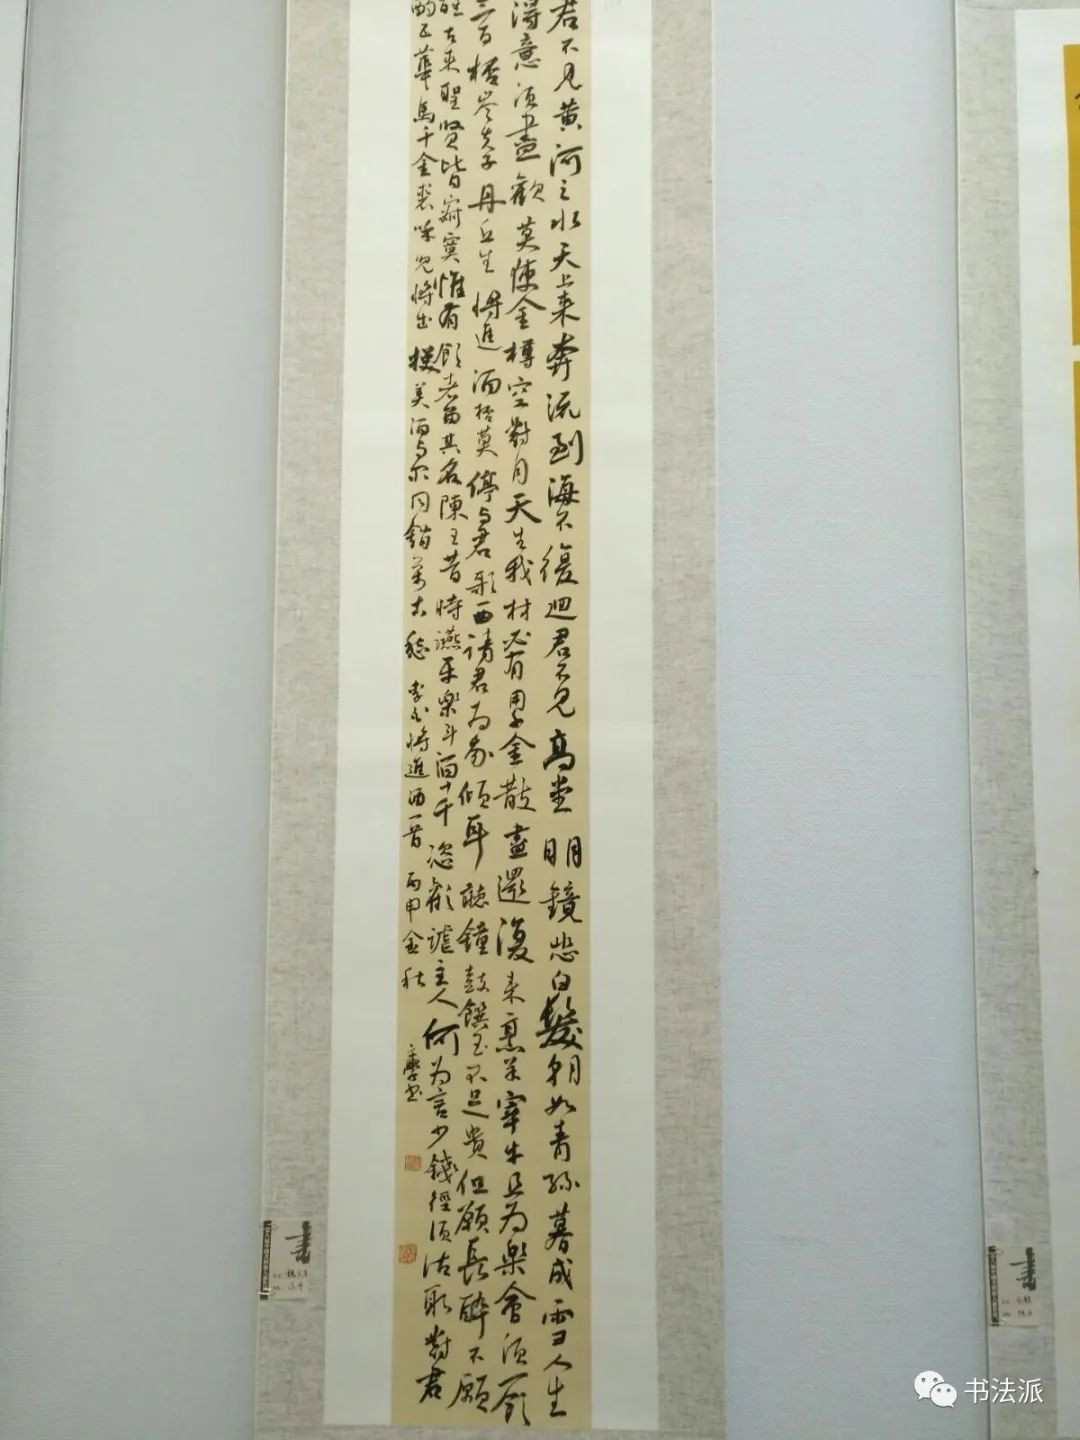 君不見黄河之水天上来奔流到海不復迴君不見高堂明鏡悲白髮朝如青絲暮成雪人生
得意須盡歡莫使金樽空對月天生我材必有用千金散盡還復来烹羊宰牛且為樂會須一飲
三百杯岑夫子丹丘生将進酒杯莫停与君歌一曲請君为我傾耳聽鐘鼓饌玉不足貴但願長醉不願
醒古来聖賢皆寂寞惟有飲者留其名陳王昔時讌平樂斗酒十千恣歡謔主人何为言少錢徑須沽取對君
酌五華馬千金裘呼兒将出換美酒与尔同銷萬古愁 李白将進酒一首 丙申金秋
书法派